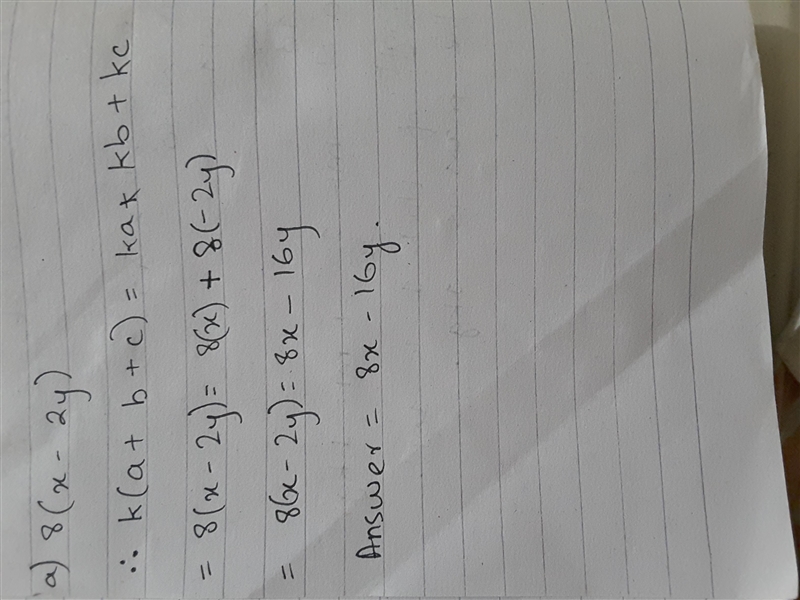 a) 8(x - 2y)
∴ k(a + b + c) = ka + kb + kc
= 8(x - 2y) = 8(x) + 8(-2y)
= 8(x - 2y) = 8x - 16y
Answer = 8x - 16y.